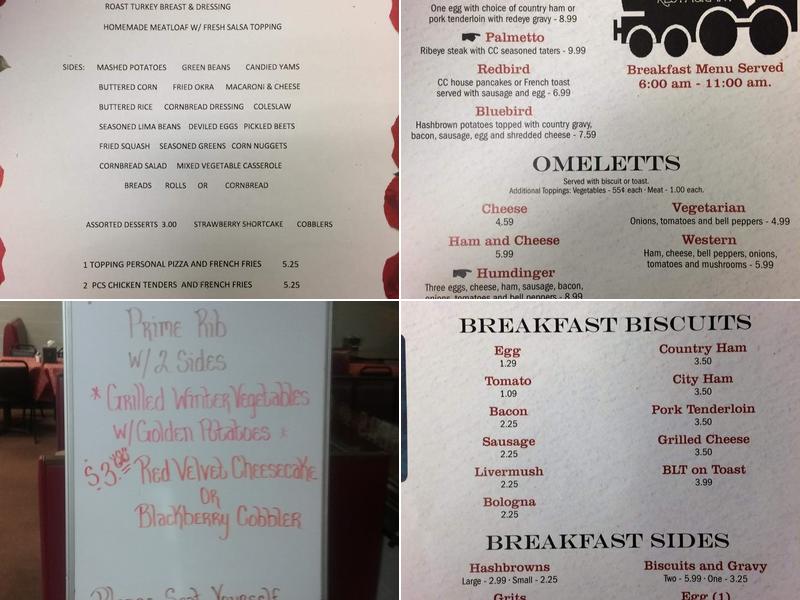 ROAST TURKEY BREAST & DRESSING
HOMEMADE MEATLOAF W/ FRESH SALSA TOPPING
SIDES: MASHED POTATOES GREEN BEANS CANDIED YAMS
BUTTERED CORN FRIED OKRA MACARONI & CHEESE
BUTTERED RICE CORNBREAD DRESSING COLESLAW
SEASONED LIMA BEANS DEVILED EGGS PICKLED BEETS
FRIED SQUASH SEASONED GREENS CORN NUGGETS
CORNBREAD SALAD MIXED VEGETABLE CASSEROLE
BREADS ROLLS OR CORNBREAD
ASSORTED DESSERTS 3.00 STRAWBERRY SHORTCAKE COBBLERS
1 TOPPING PERSONAL PIZZA AND FRENCH FRIES 5.25
2 PCS CHICKEN TENDERS AND FRENCH FRIES 5.25
One egg with choice of country ham or
pork tenderloin with redeye gravy - 8.99
Palmetto
Ribeye steak with CC seasoned taters - 9.99
Redbird
CC house pancakes or French toast
served with sausage and egg - 6.99
Bluebird
Hashbrown potatoes topped with country gravy,
bacon, sausage, egg and shredded cheese - 7.59
RESTAURANT
Breakfast Menu Served
6:00 am - 11:00 am.
OMELETTS
Served with biscuit or toast.
Additional Toppings: Vegetables - 55¢ each · Meat - 1.00 each.
Cheese
4.59
Ham and Cheese
5.99
Humdinger
Three eggs, cheese, ham, sausage, bacon,
onions, tomatoes and bell peppers - 8.99
Vegetarian
Onions, tomatoes and bell peppers - 4.99
Western
Ham, cheese, bell peppers, onions,
tomatoes and mushrooms - 5.99
Prime Rib
W/ 2 Sides
* Grilled Winter Vegetables
W/ Golden Potatoes *
$3.00 Red Velvet Cheesecake
OR
Blackberry Cobbler
Please Seat Yourself
BREAKFAST BISCUITS
Egg
1.29
Tomato
1.09
Bacon
2.25
Sausage
2.25
Livermush
2.25
Bologna
2.25
Country Ham
3.50
City Ham
3.50
Pork Tenderloin
3.50
Grilled Cheese
3.50
BLT on Toast
3.99
BREAKFAST SIDES
Hashbrowns
Large - 2.99 · Small - 2.25
Grits
Biscuits and Gravy
Two - 5.99 · One - 3.25
Egg (1)